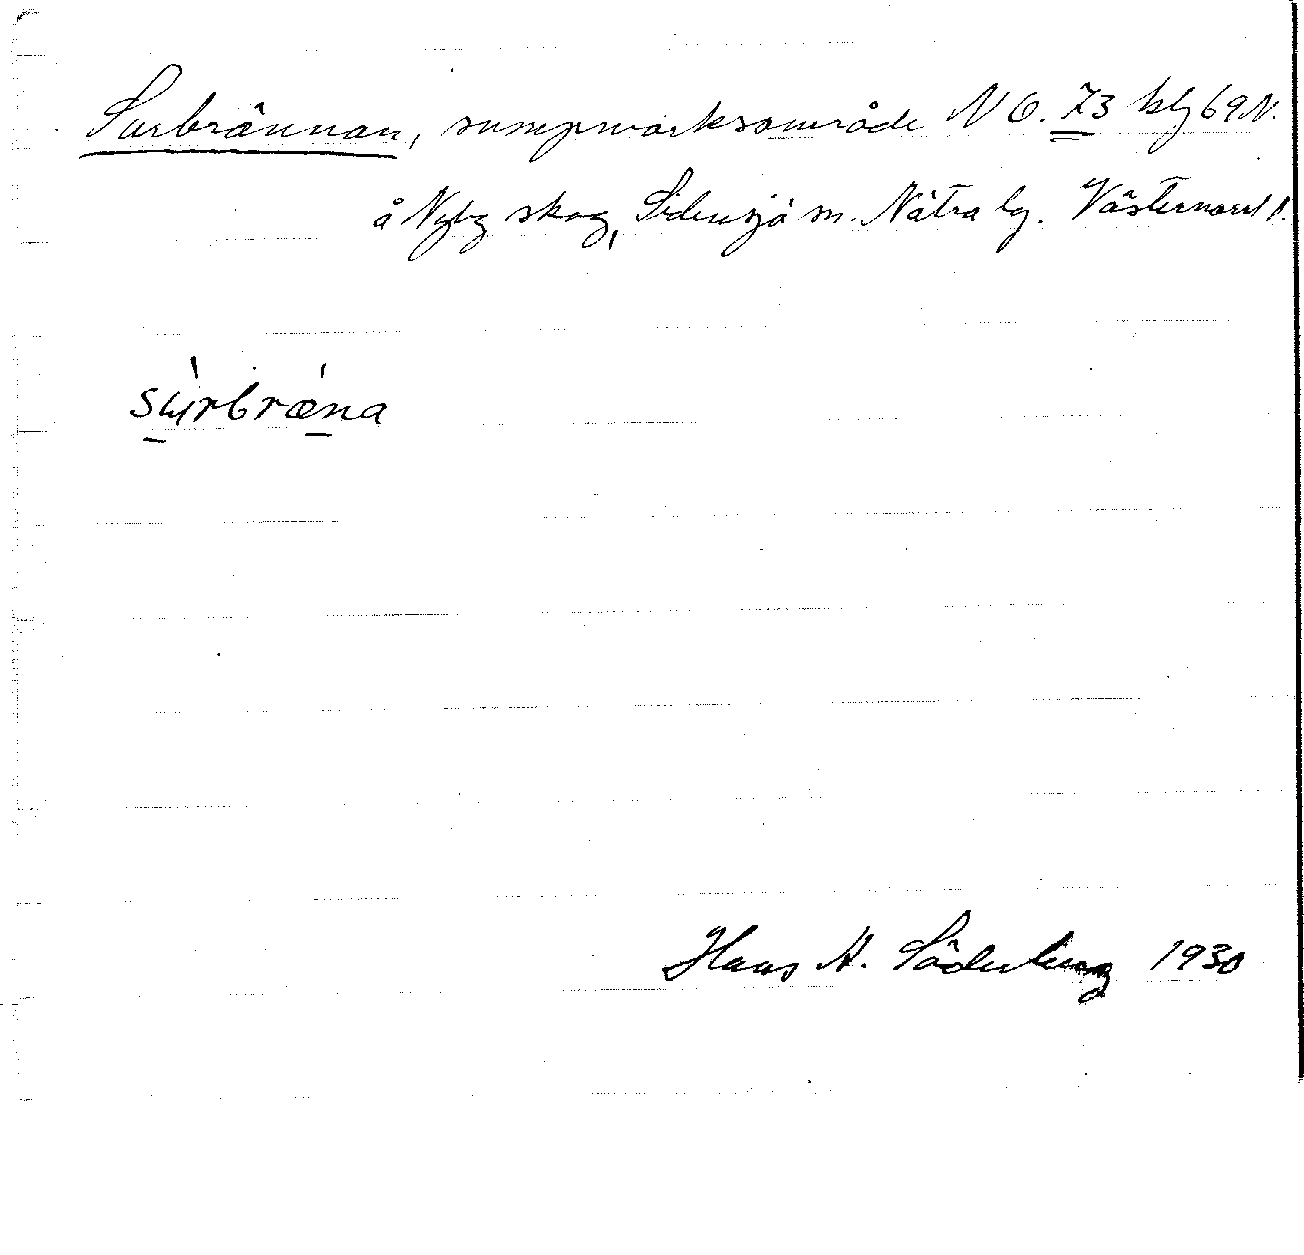 Surbrännan, sumpmarksområde N Ö. 73 blg 69 N.
å Nyby skog, Sidensjö sn. Nätra lg. Västernorrl l.
súrbræ´na
Hans A. Söderberg 1930